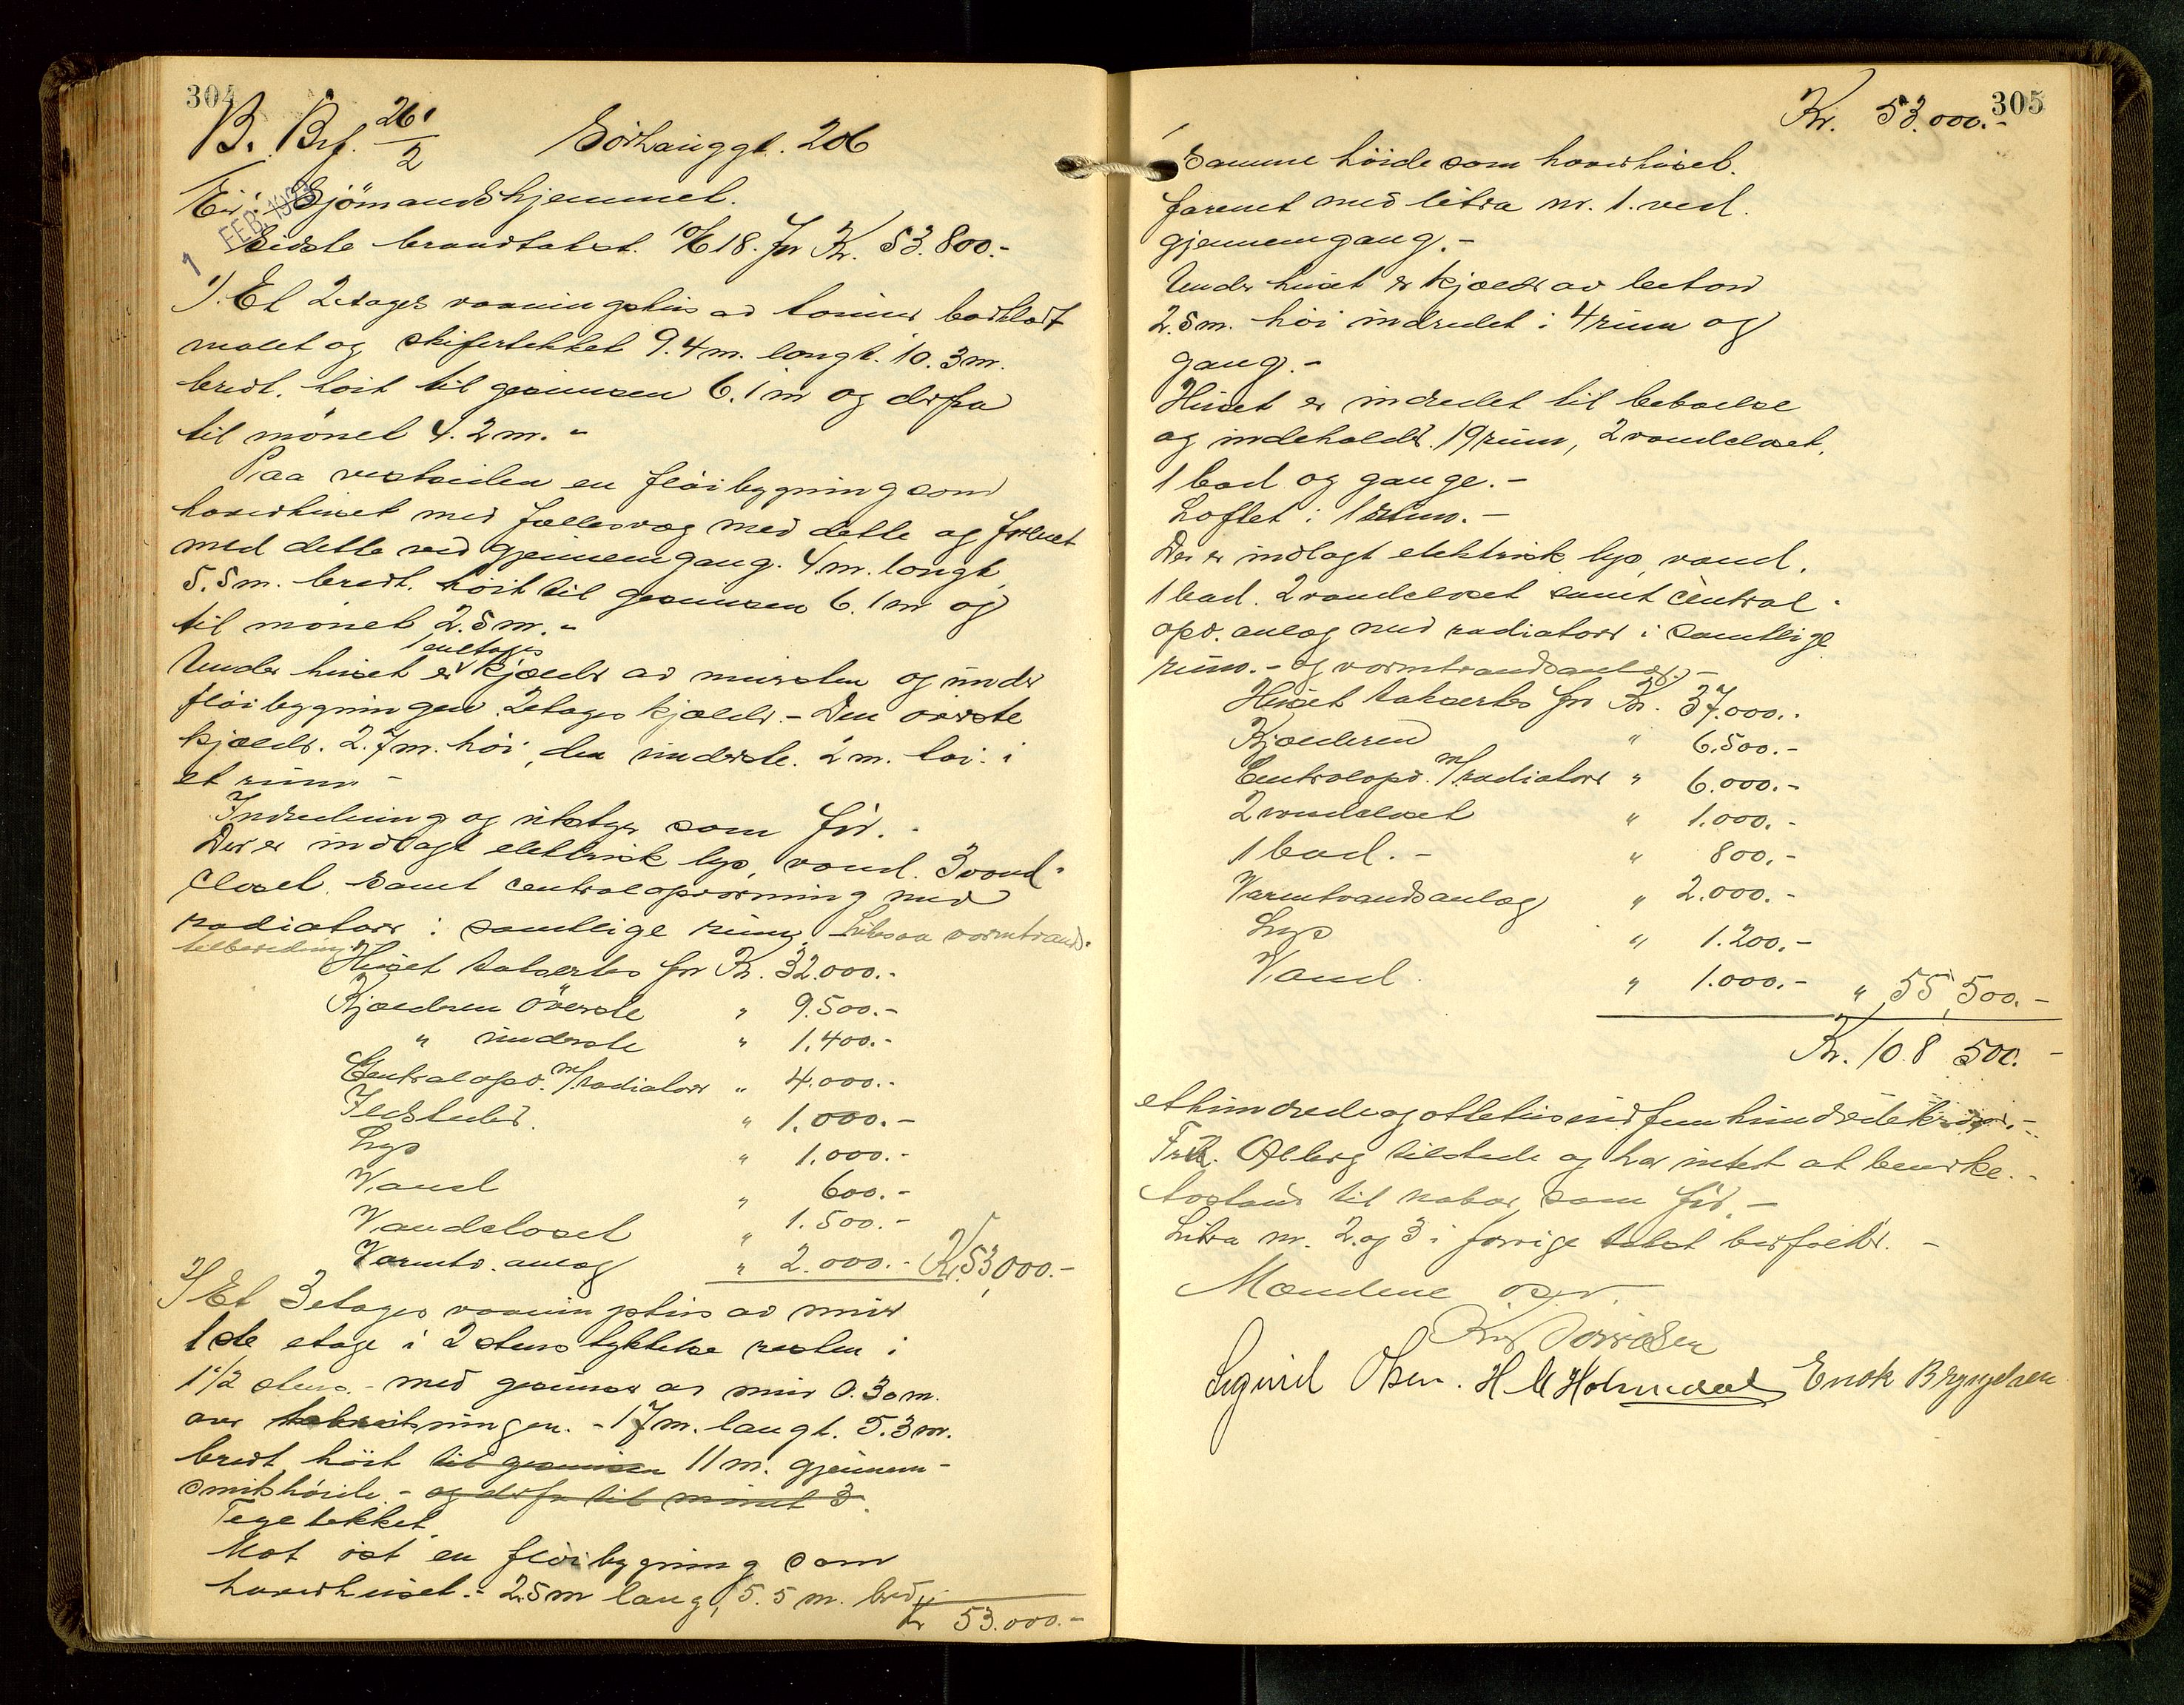 304
B. Brf. 261/2 Sörhauggt. 206
Eier: Sjömandshjemmet.
1 FEB. 192
Sidste brandtakst. 10/6 18. for Kr. 53.800.-
1). Et 2 etages vaaningshus av tømmer bordklædt
malet og skifertekket 9.4 m. langt. 10.3 m.
bredt. høit til gesimsen 6.1 m og derfra
til mønet 4.2 m. -
Paa vestsiden en fløibygning som
hovedhuset med fællesvæg med dette og forenet
med dette ved gjennemgang. 4 m. langt,
5.5 m. bredt. høit til gesimsen 6.1 m og
til mønet 2.5 m. -
1 etages
Under huset er kjælder av mursten og under
fløibygningen 2 etages kjælder. - Den øverste
kjælder. 2.7 m. høi, den underste. 2 m. høi. i
et rum -
Indredning og utstyr som før. -
Der er indlagt elektrisk lys, vand. 3 vand-
closet. samt centralopvarming med
radiatorer i samtlige rum. Likesaa varmtvands-
tilberedning
Huset takseres for Kr. 32.000.-
Kjælderen överste " 9.500.-
" underste " 1.400.-
Centralopv. m/radiatorer " 4.000.-
Ildsteder. " 1.000.-
Lys " 1.000.-
Vand " 600.-
Vandcloset " 1.500.-
Varmtv. anlæg " 2.000.- Kr. 53,000.-
2) Et 3 etages vaaningshus av mur
1ste etage i 2 stens tykkelse resten i
1 1/2 stens. - med gesimser av mur 0.30 m.
over takreisningen. - 17 m. langt. 5.3 m.
bredt, höit til gesimsen 11 m. gjennem-
snitshöide. - og derfra til mönet 3.
Tegltekket.
Mot öst en flöibygning som
hovedhuset. - 2.5 m lang, 5.5 m. bred,
Kr 53.000.-
305
Kr. 53.000.-
samme höide som hovedhuset.
forenet med litra nr. 1. ved
gjennemgang. -
Under huset er kjælder av beton
2.5 m. høi indredet i 4 rum og
gang. -
Huset er indredet til beboelse
og indeholder 19 rum, 2 vandcloset,
1 bad og gange. -
Loftet i 1 rum. -
Der er indlagt elektrisk lys, vand,
1 bad. 2 vandcloset samt central-
opv. anlæg med radiatorer i samtlige
rum. - og varmtvandsanlæg. -
Huset takseres for Kr. 37.000.-
Kjælderen " 6.500.-
Centralopv. m/radiatorer " 6.000.-
2 vandcloset " 1.000.-
1 bad. - " 800.-
Varmtvandsanlæg " 2.000.-
Lys " 1.200.-
Vand " 1.000.- " 55,500.-
Kr. 108 500.-
ethundrede og ottetusind fem hundrede kroner. -
Frk. Ølberg tilstede og har intet at bemerke. -
Avstand til naboer som før. -
Litra nr. 2 og 3 i forrige takst bortfalder. -
Mændene opl.
Sigurd Olsen. H M Holmedal Enok Bryngelsen